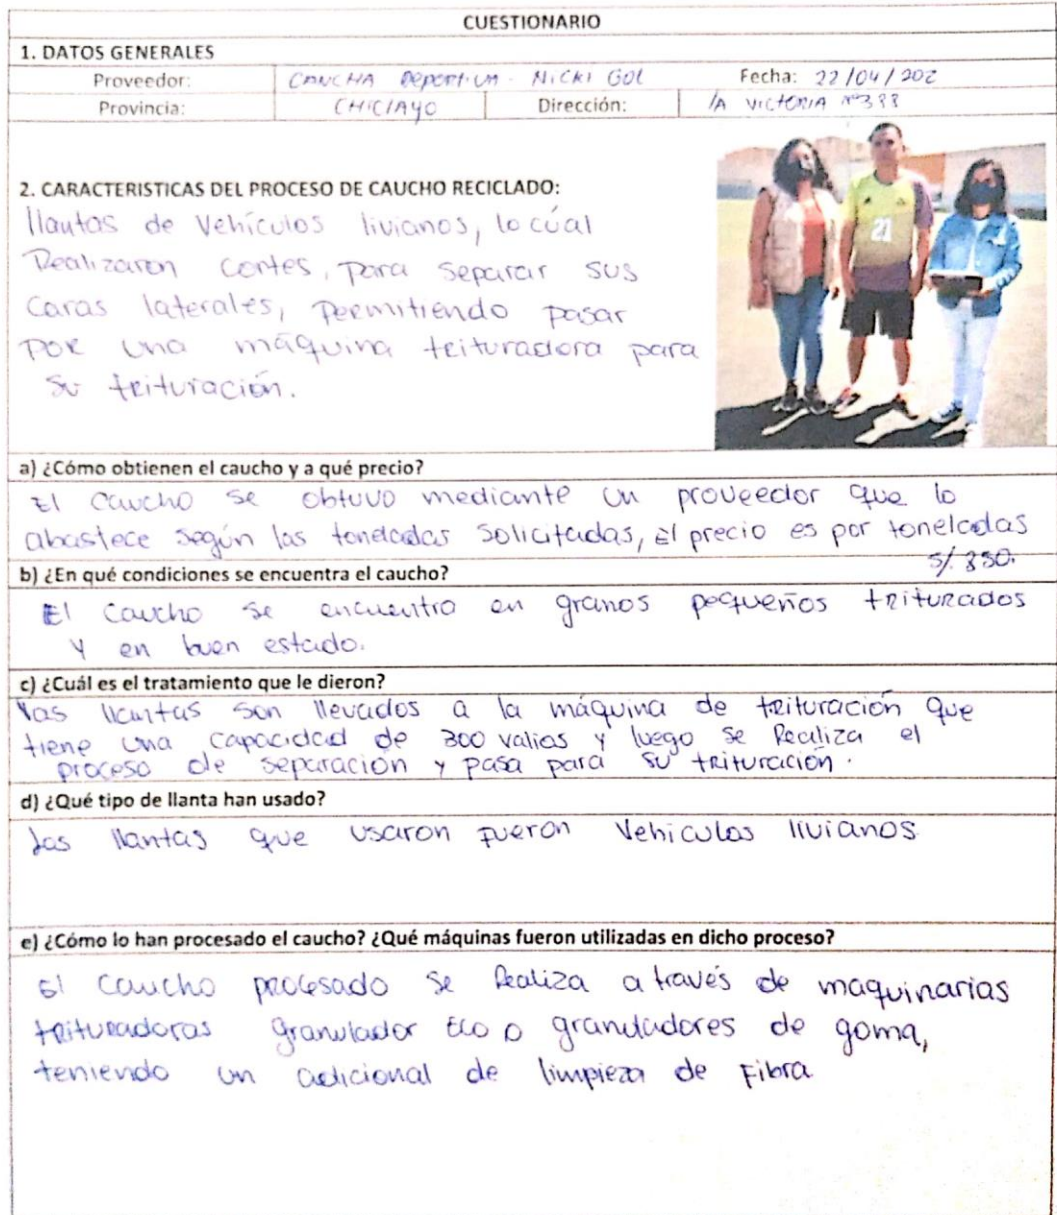 CUESTIONARIO
1. DATOS GENERALES
Proveedor: CANCHA Deportiva - NICKI GOL Fecha: 22/04/202
Provincia: CHICLAYO Dirección: LA VICTORIA N°388
2. CARACTERISTICAS DEL PROCESO DE CAUCHO RECICLADO:
llantas de Vehículos livianos, lo cúal
Realizaron cortes, para separar sus
Caras laterales, Permitiendo pasar
por una máquina trituradora para
su trituración.
21
a) ¿Cómo obtienen el caucho y a qué precio?
El caucho se obtuvo mediante un proveedor que lo
abastece según las toneladas solicitadas, El precio es por toneladas
S/. 350.
b) ¿En qué condiciones se encuentra el caucho?
El caucho se encuentra en granos pequeños triturados
y en buen estado.
c) ¿Cuál es el tratamiento que le dieron?
las llantas son llevados a la máquina de trituración que
tiene una capacidad de 300 y luego se Realiza el
proceso de separación y pasa para su trituración.
d) ¿Qué tipo de llanta han usado?
Las llantas que usaron fueron Vehiculos livianos
e) ¿Cómo lo han procesado el caucho? ¿Qué máquinas fueron utilizadas en dicho proceso?
El caucho procesado se Realiza a través de maquinarias
trituradoras granulador Eco o granuladores de goma,
teniendo un adicional de limpieza de Fibra